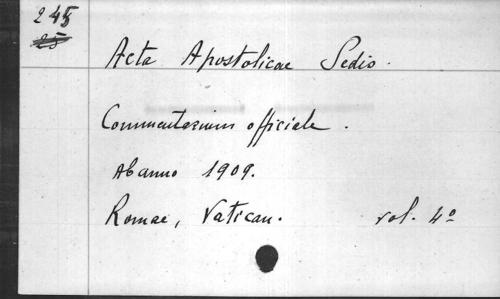 245
25
Acta Apostolicae Sedis.
Commentarium officiale.
Ab anno 1909.
Romae, Vatican. vol. 4º